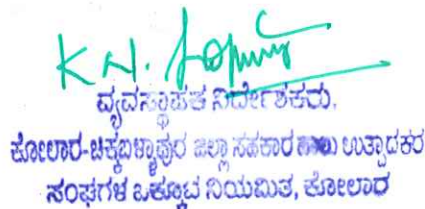 K. N.
ವ್ಯವಸ್ಥಾಪಕ ನಿರ್ದೇಶಕರು.
ಕೋಲಾರ-ಚಿಕ್ಕಬಳ್ಳಾಪುರ ಜಿಲ್ಲಾ ಸಹಕಾರ ಹಾಲು ಉತ್ಪಾದಕರ
ಸಂಘಗಳ ಒಕ್ಕೂಟ ನಿಯಮಿತ, ಕೋಲಾರ